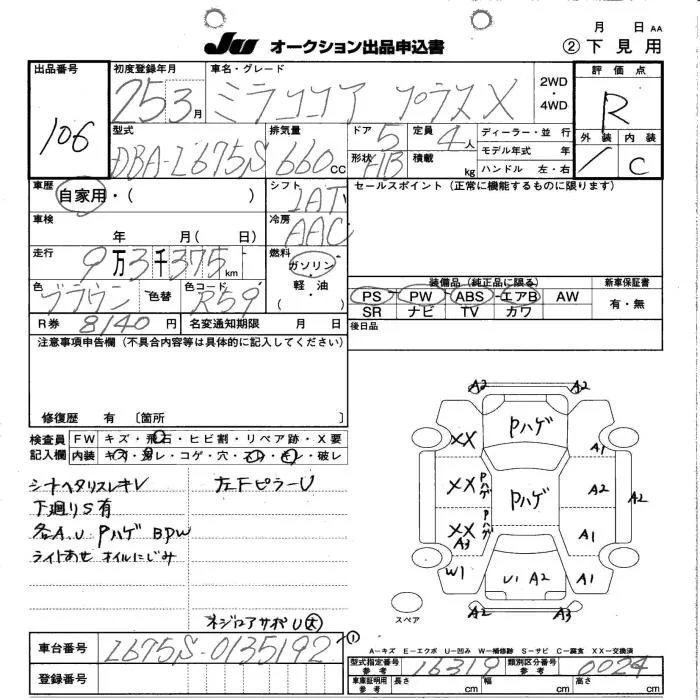 JU オークション出品申込書
月 日 AA
② 下見用
出品番号 106
初度登録年月 25 3月
車名・グレード ミラココア プラスX
2WD・4WD
評価点 R
外装 / 内装 C
型式 DBA-L675S
排気量 660cc
ドア 5
形状 HB
定員 4人
積載 kg
ディーラー・並行
モデル年式 年
ハンドル 左・右
車歴 自家用・( )
シフト IAT
セールスポイント (正常に機能するものに限ります)
車検 年 月( 日)
冷房 AAC
走行 9万3千375km
燃料 ガソリン・軽油・( )
色 ブラウン 色替
色コード R59
装備品 (純正品に限る)
PS PW ABS エアB AW
SR ナビ TV カワ
新車保証書 有・無
R券 8140円
名変通知期限 月 日
後日品
注意事項申告欄 (不具合内容等は具体的に記入してください)
修復歴 有 〔箇所 〕
検査員記入欄
FW キズ・飛石・ヒビ割・リペア跡・X要
内装 キズ・ヨレ・コゲ・穴・スレ・キレ・破レ
シートヘタリスレキレ
下廻りS有
各A.U Pハゲ BPW
ライトあせ オイルにじみ
左FピラーU
ネジロアサポU大
A2 A2
Pハゲ
XX A1
XX Pハゲ Pハゲ A2
XX A3 Pハゲ A1
W1 U1 A2 A1
A2 A2
スペア
車台番号 L675S-0135192 ①
登録番号
A−キズ E−エクボ U−凹み W−補修跡 S−サビ C−腐食 XX−交換済
型式指定番号 参考 16319
類別区分番号 参考 0024
車庫証明用 参考 長さ cm 幅 cm 高さ cm